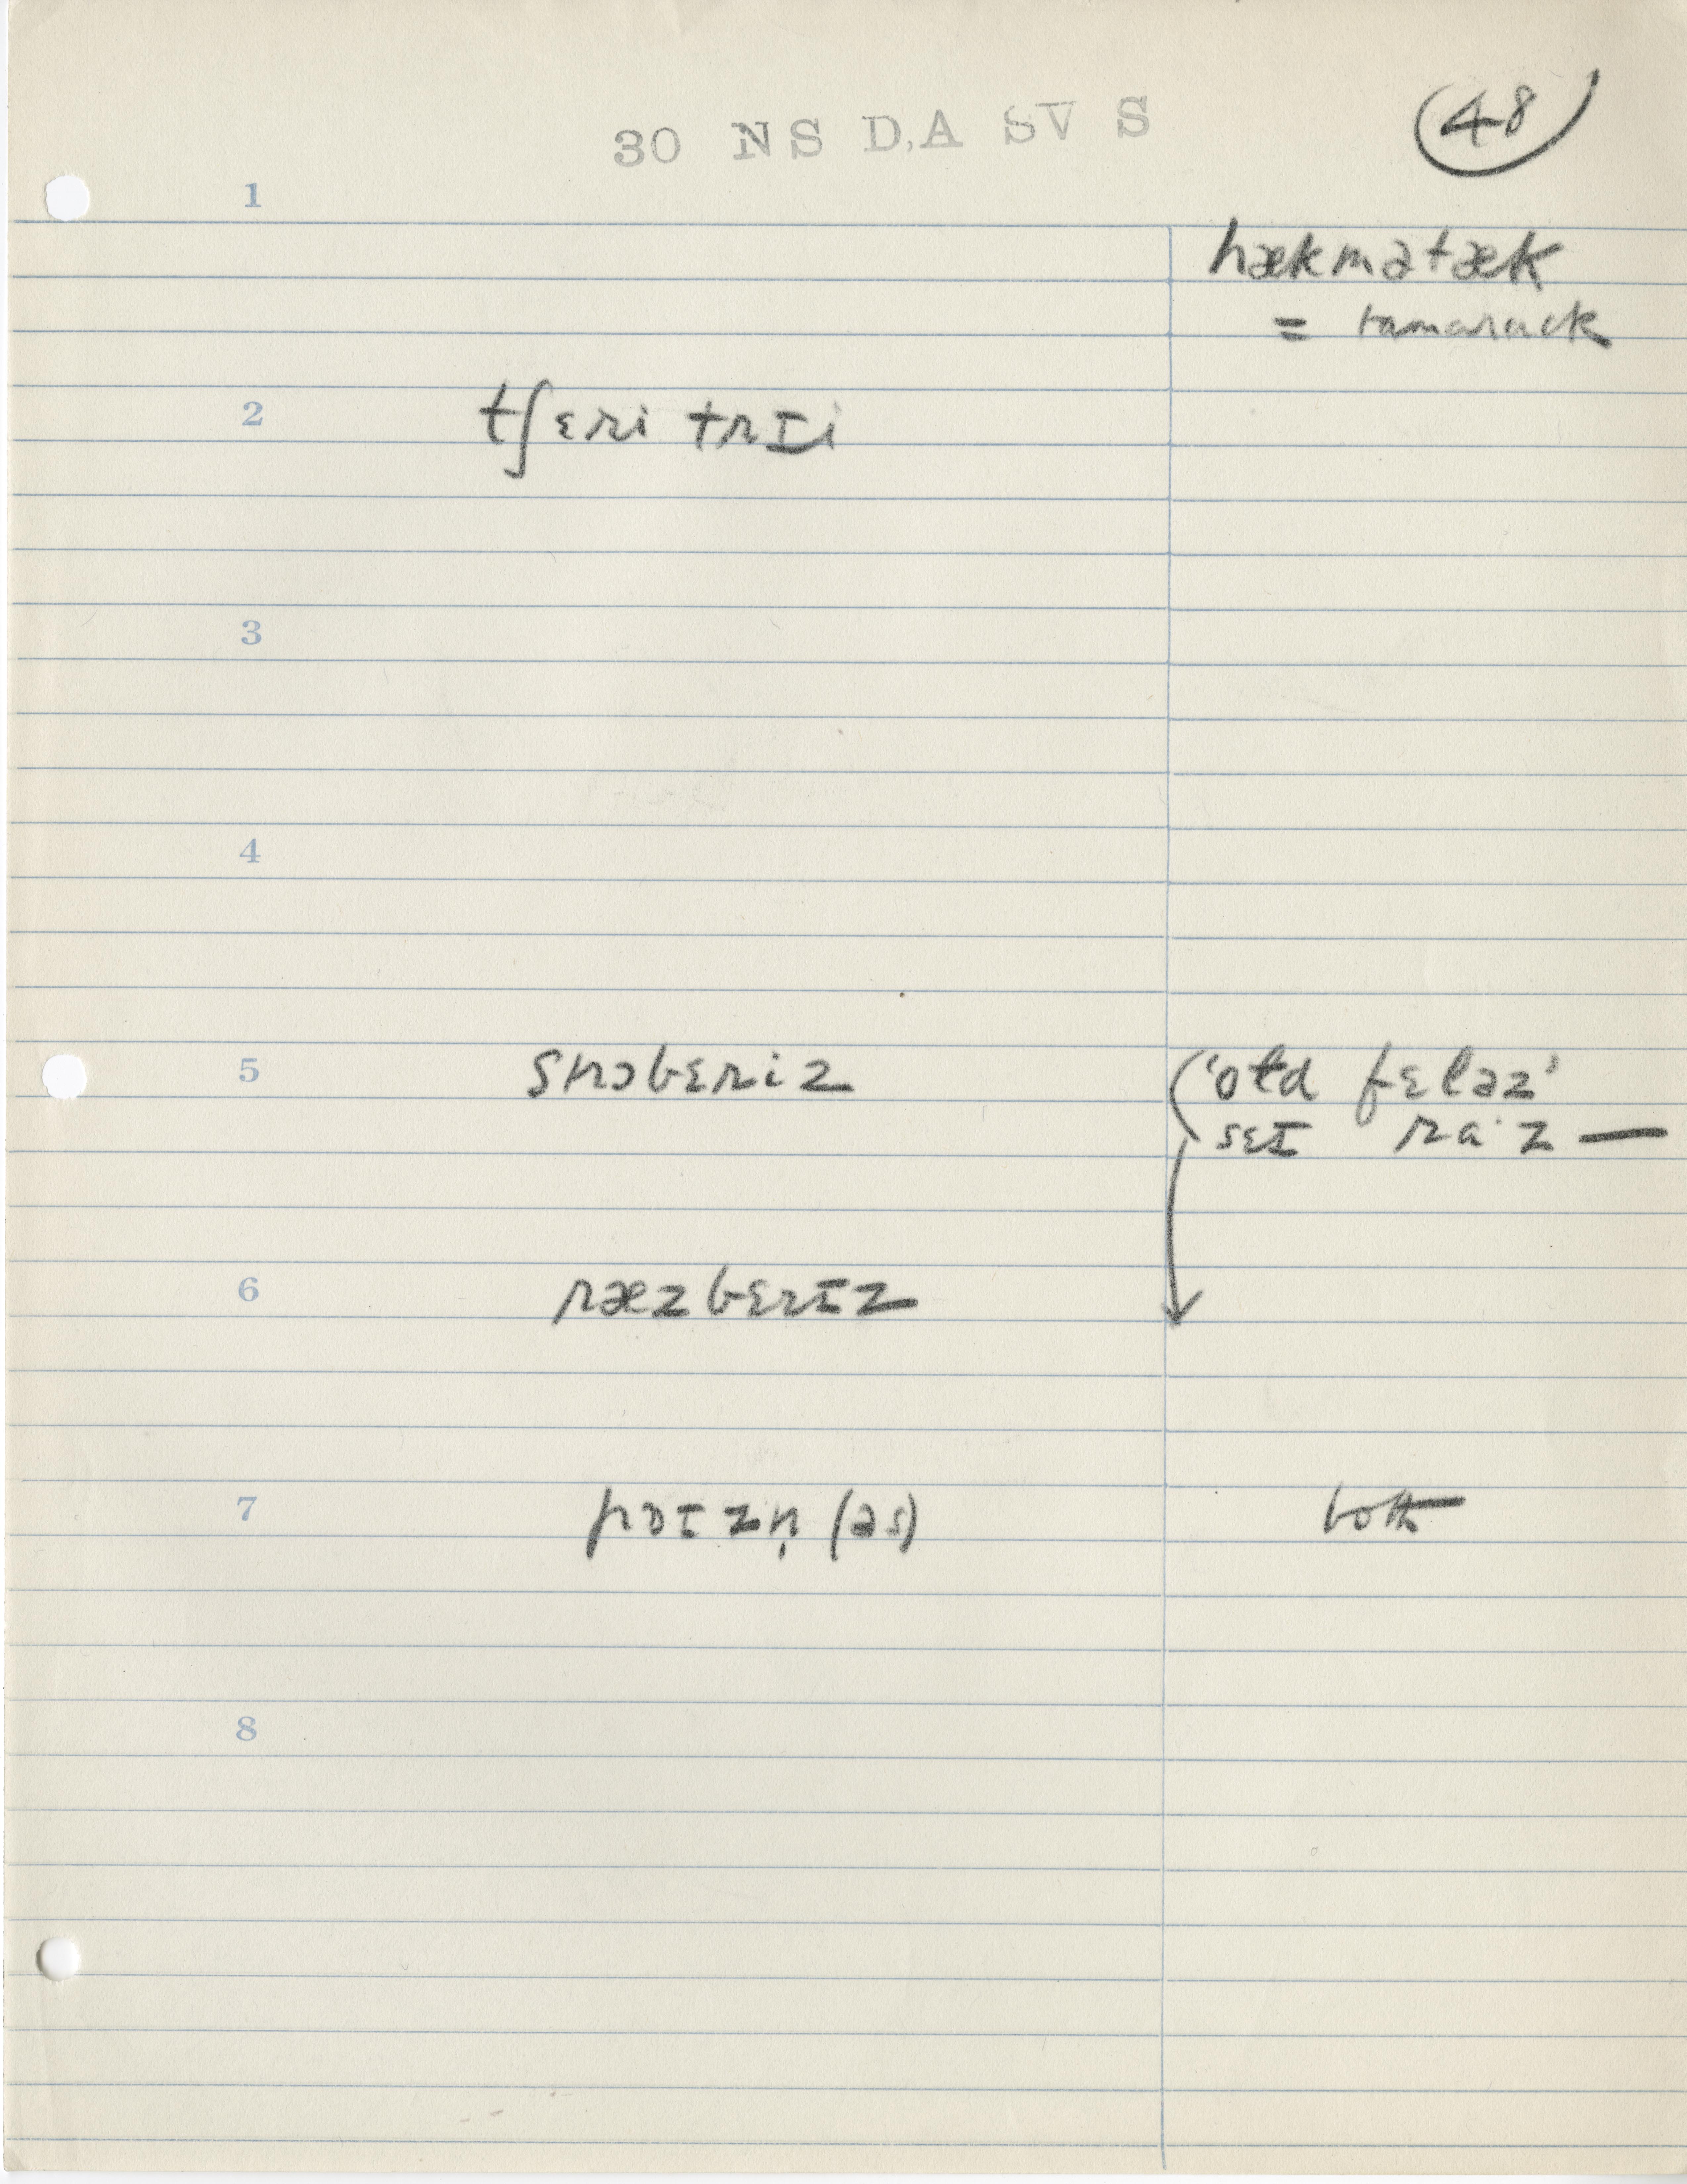 30 NS D,A SV S
48
1
hækmətæk
= tamarack
2 tʃɛri trɪi
3
4
5 snɔbɛriz ('old fɛləz'
sɛɪ ra·z —
6 ræzbɛrɪz
7 pɔɪzn̩ (əs) both
8